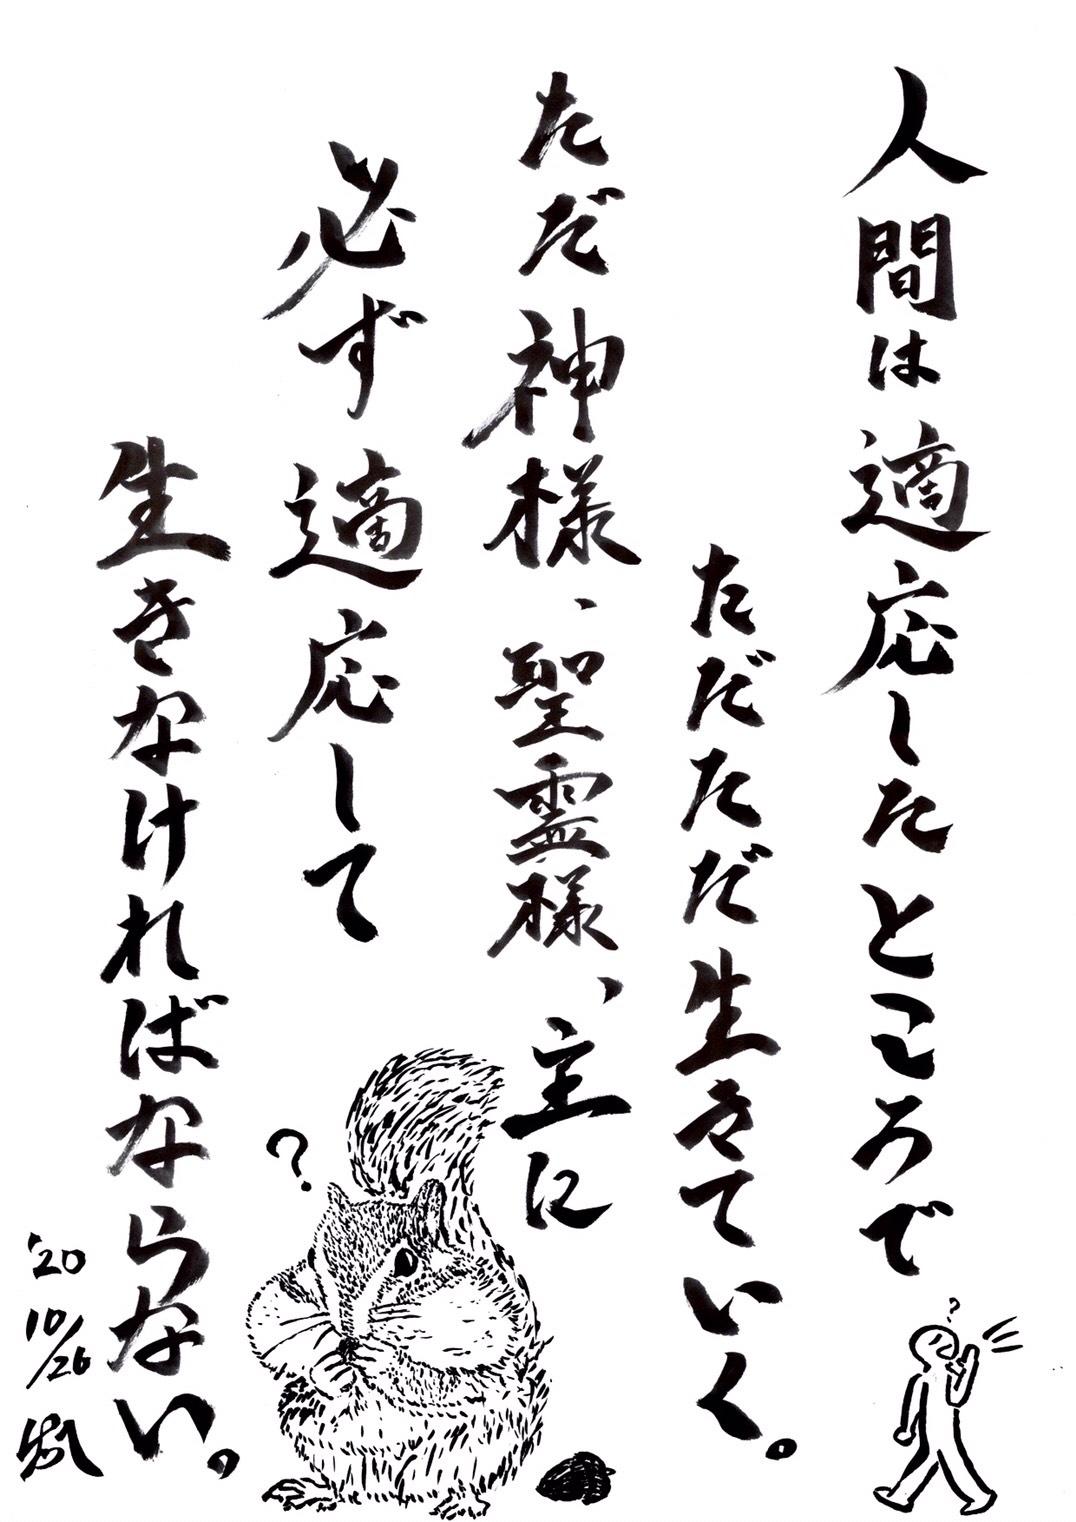 人間は適応したところで
ただただ生きていく。
ただ神様、聖霊様、主に
必ず適応して
生きなければならない。
?
?
'20
10/26